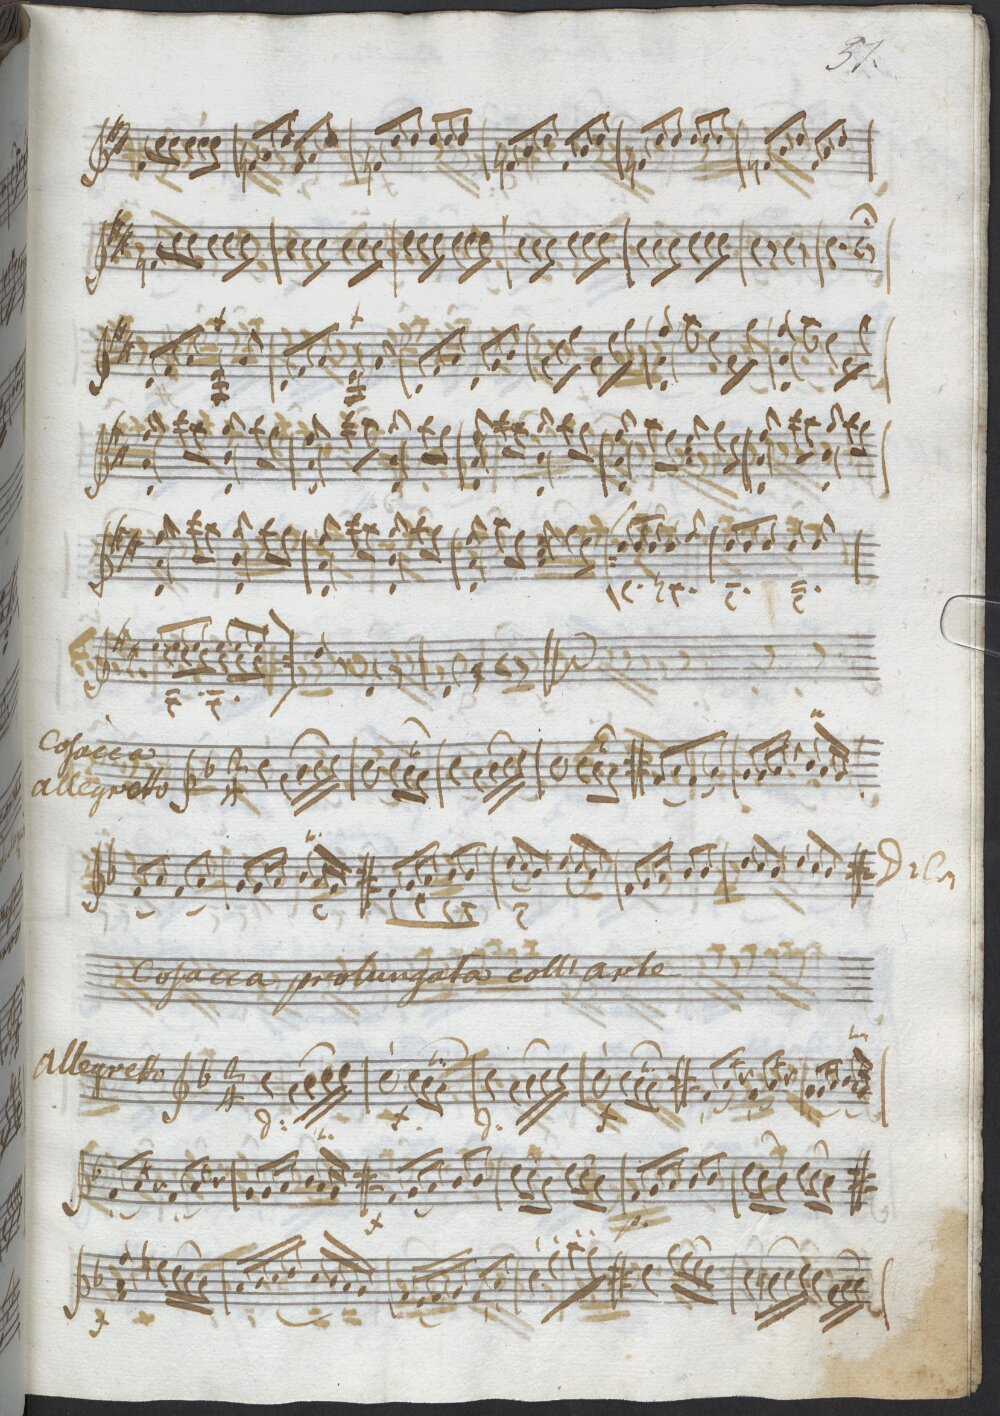 51.
Cosacca
allegretto
Cosacca prolungata coll'arte
allegretto